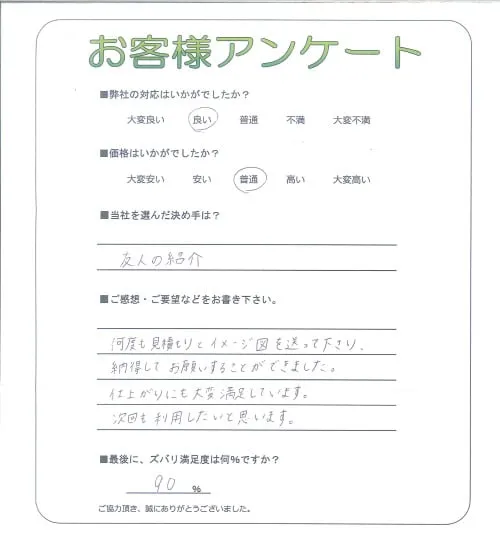 お客様アンケート
■弊社の対応はいかがでしたか？
大変良い 良い 普通 不満 大変不満
■価格はいかがでしたか？
大変安い 安い 普通 高い 大変高い
■当社を選んだ決め手は？
友人の紹介
■ご感想・ご要望などをお書き下さい。
何度も見積もりとイメージ図を送って下さり、
納得してお願いすることができました。
仕上がりにも大変満足しています。
次回も利用したいと思います。
■最後に、ズバリ満足度は何%ですか？
90 %
ご協力頂き、誠にありがとうございました。